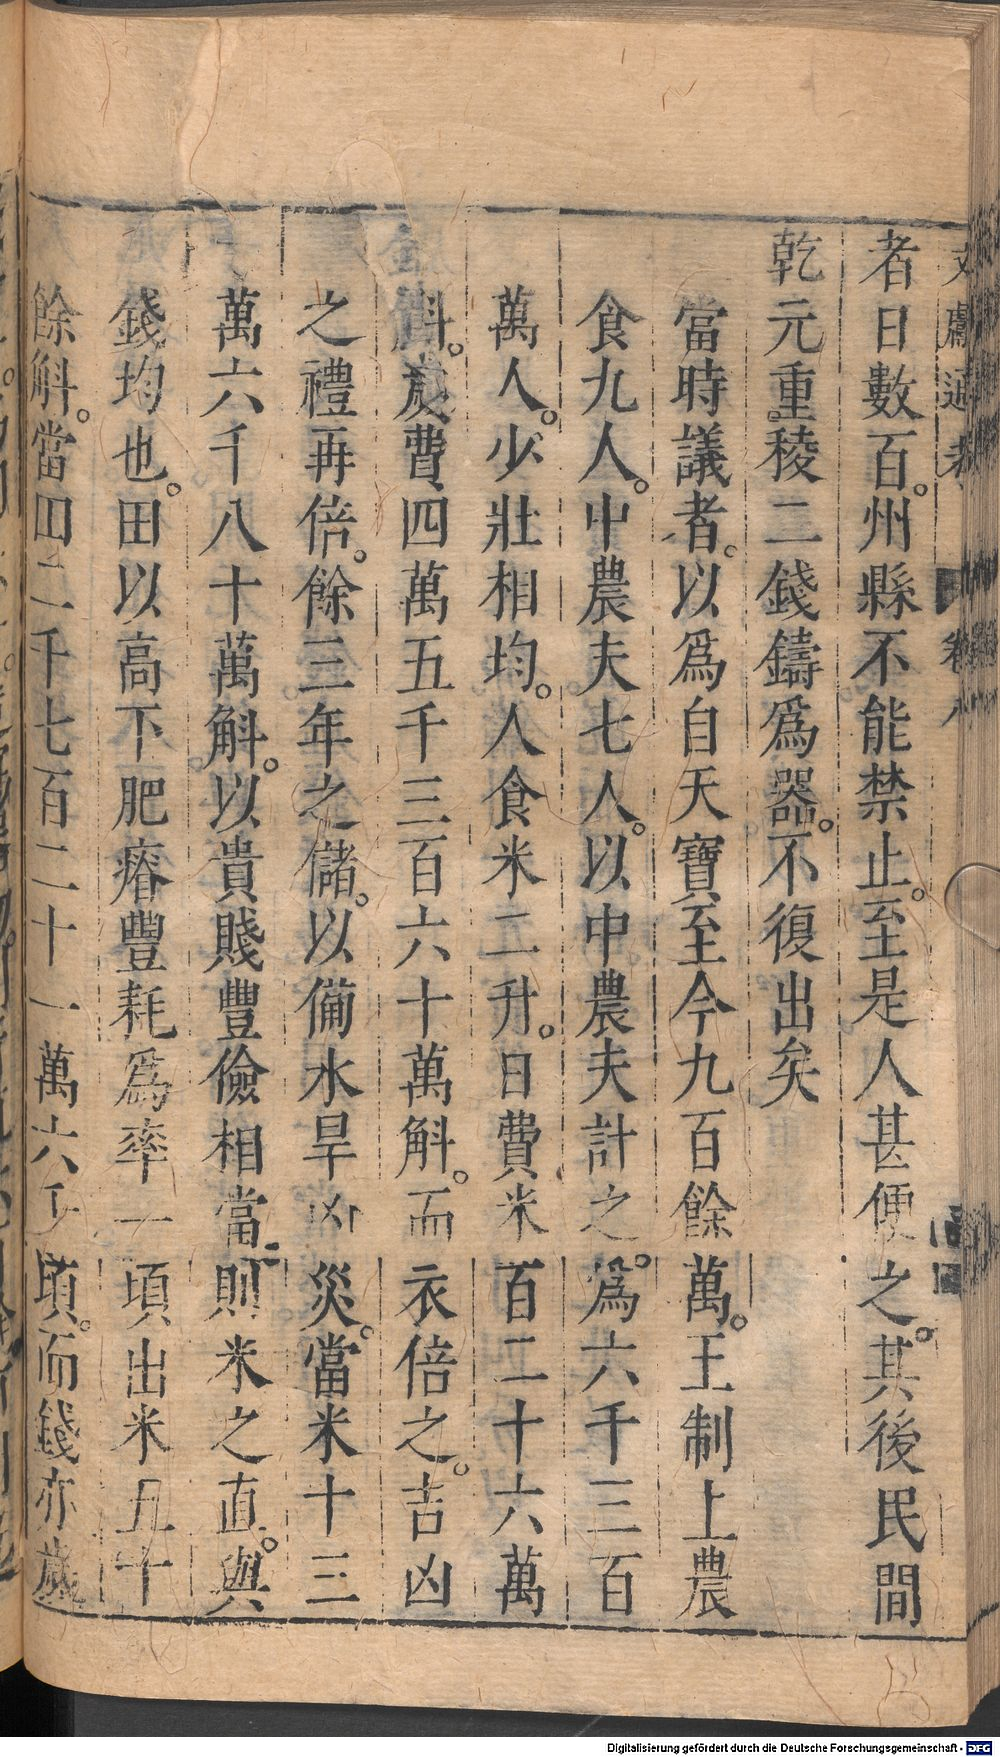 文獻通考 卷八
者日數百。州縣不能禁止。至是人甚便之。其後民間
乾元重稜二錢鑄爲器。不復出矣
當時議者。以爲自天寶至今九百餘萬。王制上農
食九人。中農夫七人。以中農夫計之。爲六千三百
萬人。少壯相均。人食米二升。日費米百二十六萬
斛。歲費四萬五千三百六十萬斛。而衣倍之。吉凶
之禮再倍。餘三年之儲。以備水旱凶災。當米十三
萬六千八十萬斛。以貴賤豐儉相當。則米之直。與
錢均也。田以高下肥瘠豐耗爲率一頃出米五十
餘斛。當田二千七百二十一萬六千頃。而錢亦歲
Digitalisierung gefördert durch die Deutsche Forschungsgemeinschaft - DFG